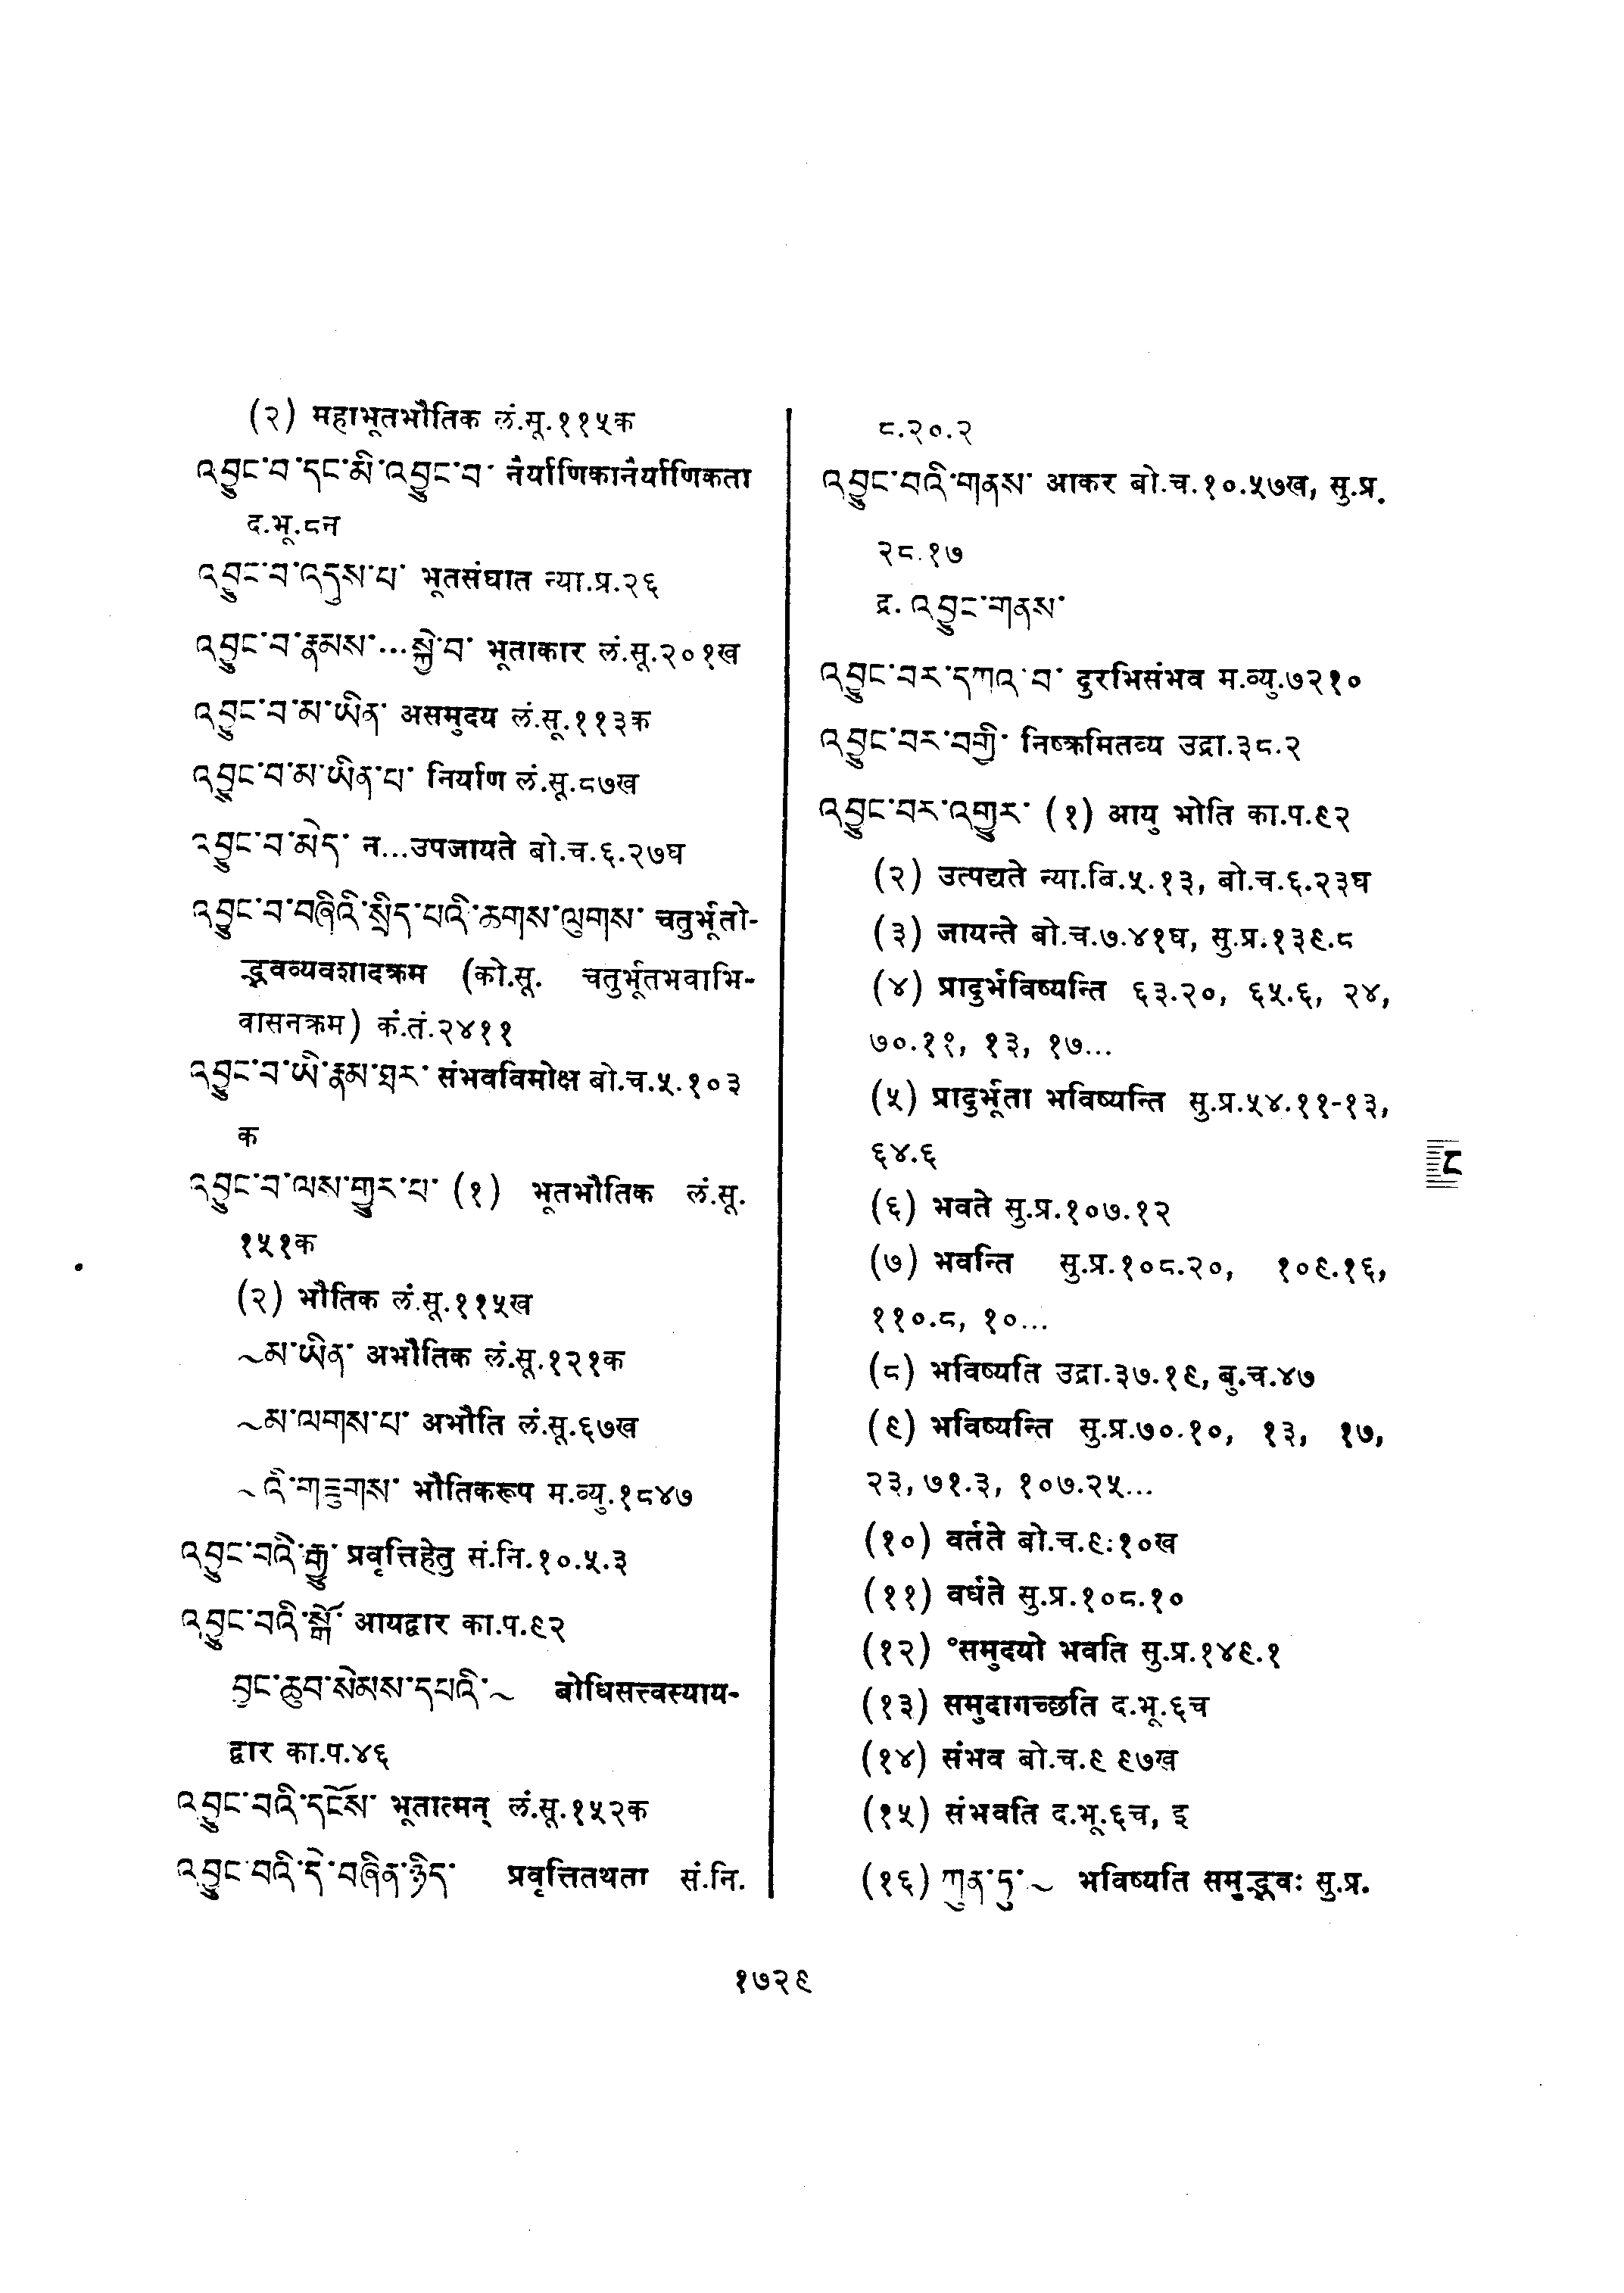 (२) महाभूतभौतिक लं.सू.११५क
འབྱུང་བ་དང་མི་འབྱུང་བ་ नैर्याणिकानैर्याणिकता
द.भू.८न
འབྱུང་བ་འདུས་པ་ भूतसंघात न्या.प्र.२६
འབྱུང་བ་རྣམས་...སྐྱེ་བ་ भूताकार लं.सू.२०१ख
འབྱུང་བ་མ་ཡིན་ असमुदय लं.सू.११३क
འབྱུང་བ་མ་ཡིན་པ་ निर्याण लं.सू.८७ख
འབྱུང་བ་མེད་ न...उपजायते बो.च.६.२७घ
འབྱུང་བ་བཞིའི་སྲིད་པའི་ཆགས་ལུགས་ चतुर्भूतो-
द्भवव्यवशादक्रम (को.सू. चतुर्भूतभवाभि-
वासनक्रम) कं.तं.२४११
འབྱུང་བ་ཡེ་རྣམ་ཐར་ संभवविमोक्ष बो.च.५.१०३
क
འབྱུང་བ་ལས་གྱུར་པ་ (१) भूतभौतिक लं.सू.
१५१क
(२) भौतिक लं.सू.११५ख
~མ་ཡིན་ अभौतिक लं.सू.१२१क
~མ་ལགས་པ་ अभौति लं.सू.६७ख
~འི་གཟུགས་ भौतिकरूप म.व्यु.१८४७
འབྱུང་བའི་རྒྱུ་ प्रवृत्तिहेतु सं.नि.१०.५.३
འབྱུང་བའི་སྒོ་ आयद्वार का.प.९२
བྱང་ཆུབ་སེམས་དཔའི་~ बोधिसत्त्वस्याय-
द्वार का.प.४६
འབྱུང་བའི་དངོས་ भूतात्मन् लं.सू.१५२क
འབྱུང་བའི་དེ་བཞིན་ཉིད་ प्रवृत्तितथता सं.नि.
८.२०.२
འབྱུང་བའི་གནས་ आकर बो.च.१०.५७ख, सु.प्र.
२८.१७
द्र. འབྱུང་གནས་
འབྱུང་བར་དཀའ་བ་ दुरभिसंभव म.व्यु.७२१०
འབྱུང་བར་བགྱི་ निष्क्रमितव्य उद्रा.३८.२
འབྱུང་བར་འགྱུར་ (१) आयु भोति का.प.९२
(२) उत्पद्यते न्या.बि.५.१३, बो.च.६.२३घ
(३) जायन्ते बो.च.७.४१घ, सु.प्र.१३९.८
(४) प्रादुर्भविष्यन्ति ६३.२०, ६५.६, २४,
७०.११, १३, १७...
(५) प्रादुर्भूता भविष्यन्ति सु.प्र.५४.११-१३,
६४.६
(६) भवते सु.प्र.१०७.१२
(७) भवन्ति सु.प्र.१०८.२०, १०९.१६,
११०.८, १०...
(८) भविष्यति उद्रा.३७.१९, बु.च.४७
(९) भविष्यन्ति सु.प्र.७०.१०, १३, १७,
२३, ७१.३, १०७.२५...
(१०) वर्तते बो.च.९:१०ख
(११) वर्धते सु.प्र.१०८.१०
(१२) °समुदयो भवति सु.प्र.१४९.१
(१३) समुदागच्छति द.भू.६च
(१४) संभव बो.च.९ ९७ख
(१५) संभवति द.भू.६च, इ
(१६) ཀུན་ཏུ་~ भविष्यति समुद्भवः सु.प्र.
१७२९